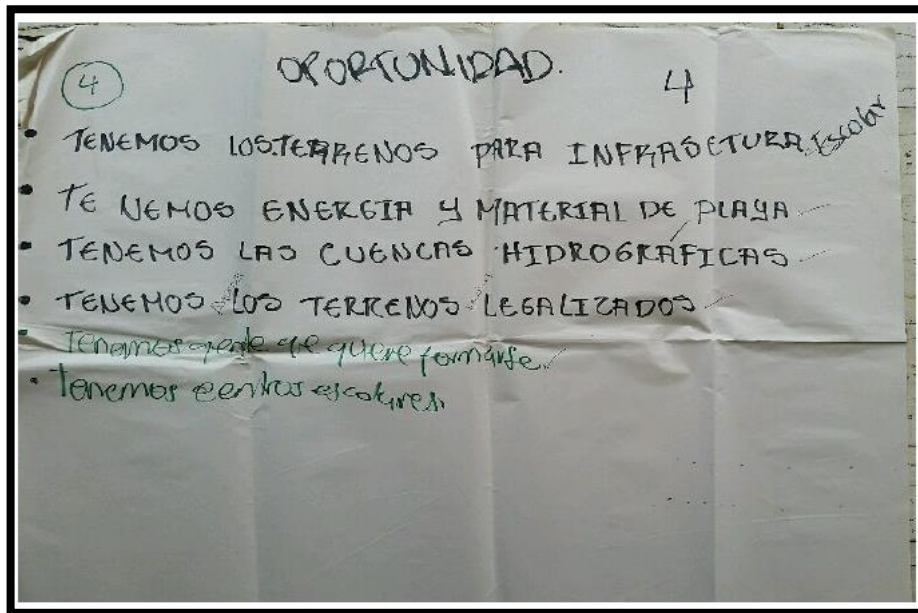 OPORTUNIDAD.
4 4
• TENEMOS LOS TERRENOS PARA INFRASCTURA Escolar
• TENEMOS ENERGIA Y MATERIAL DE PLAYA
• TENEMOS LAS CUENCAS HIDROGRÁFICAS
• TENEMOS LOS TERRENOS LEGALIZADOS
• Tenemos gente qe quiere formarse.
• Tenemos centros escolares.